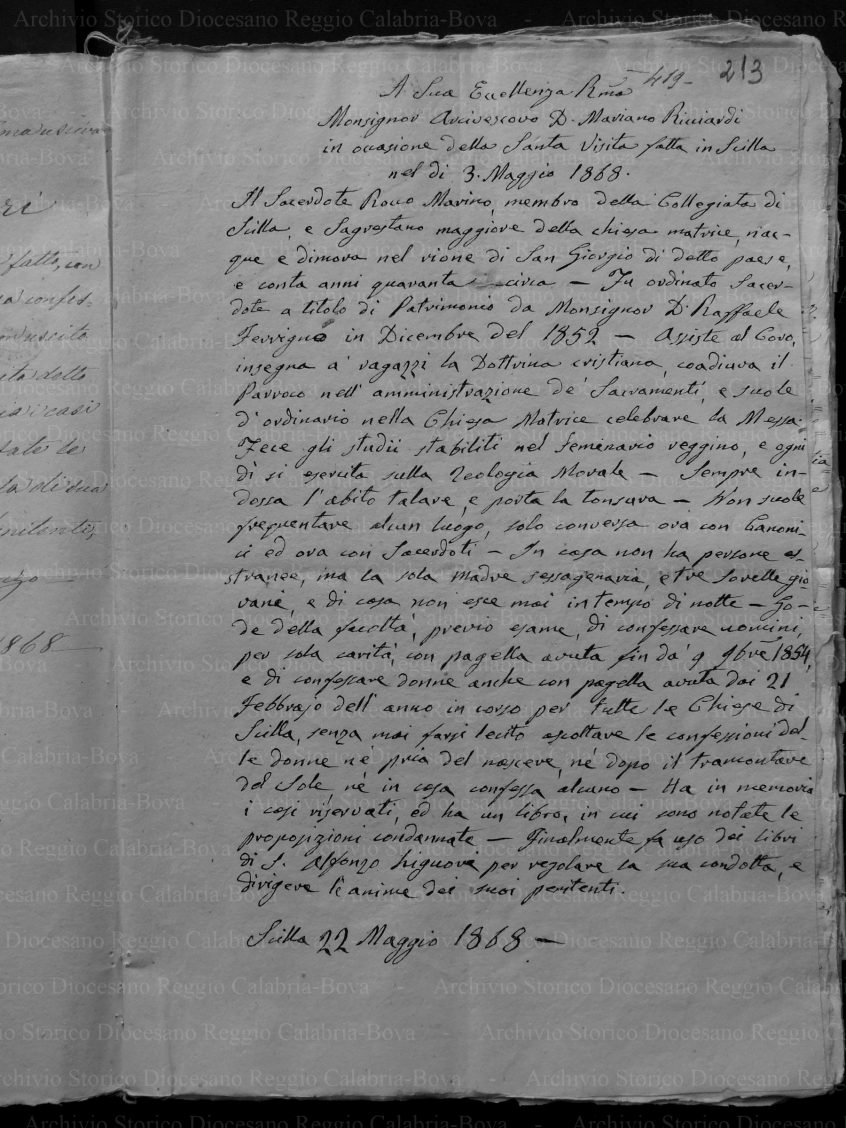 - 419 - 213
A Sua Eccellenza Rma
Monsignor Arcivescovo D. Mariano Ricciardi
in occasione della Santa Visita fatta in Scilla
nel dì 3. Maggio 1868.
Il Sacerdote Rocco Marino, membro della Collegiata di
Scilla, e Sagrestano maggiore della chiesa matrice, nac-
que e dimora nel rione di San Giorgio di detto paese,
e conta anni quaranta circa — Fu ordinato Sacer-
dote a titolo di Patrimonio da Monsignor D. Raffaele
Ferrigno in Dicembre del 1852 — Assiste al Coro,
insegna a' ragazzi la Dottrina cristiana, coadiuva il
Parroco nell'amministrazione de' Sacramenti, e suole
d'ordinario nella Chiesa Matrice celebrare la Messa.
Fece gli studii stabiliti nel Seminario reggino, e ogni
dì si esercita sulla Teologia Morale — Sempre in-
dossa l'abito talare, e porta la tonsura — Non suole
frequentare alcun luogo, solo conversa ora con Canoni-
ci ed ora con Sacerdoti — In casa non ha persone es-
tranee, ma la sola madre sessagenaria, e tre sorelle gio-
vani, e di casa non esce mai in tempo di notte — Go-
de della facoltà, previo esame, di confessare uomini,
per sola carità, con pagella avuta fin da' 9 9bre 1854,
e di confessare donne anche con pagella avuta dai 21
Febbrajo dell'anno in corso per tutte le Chiese di
Scilla, senza mai farsi lecito ascoltare le confessioni del-
le donne nè pria del nascere, nè dopo il tramontare
del Sole, nè in casa confessa alcuno — Ha in memoria
i casi riservati, ed ha un libro, in cui sono notate le
proposizioni condannate — Finalmente fa uso dei libri
di S. Alfonzo Liguore per regolare la sua condotta, e
dirigere le anime dei suoi penitenti.
Scilla 22 Maggio 1868 —
fatto, con
confes-
uscito
detto
i casi
le
di sua
penitenti,
1868
Archivio Storico Diocesano Reggio Calabria-Bova